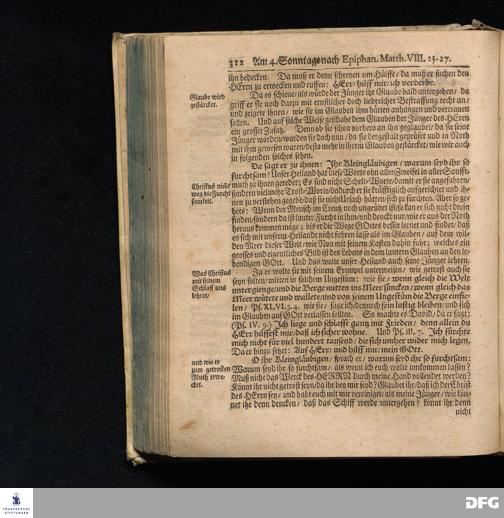 312 Am 4. Sonntage nach Epiphan. Matth. VIII. 23-27.
ihn bedecken. Da muß er denn schreyen um Hülffe / da muß er suchen den
HErrn zu erwecken und ruffen: HErr / hilff mir / ich verderbe.
Glaube wird
gestärcket.
Da es schiene / als würde der Jünger ihr Glaube bald untergehen / da
griff er sie noch darzu mit ernstlicher doch liebreicher Bestraffung recht an /
und zeigete ihnen / wie sie im Glauben ihm härten anhangen und vertrauen
sollen. Und auf solche Weise geschahe dem Glauben der Jünger des HErrn
ein grosser Zusatz. Denn ob sie schon vorhero an ihn geglaubet / da sie seine
Jünger worden / wurden sie doch nun / da sie dergestalt geprüfet und in Noth
mit ihm gewesen waren / desto mehr in ihrem Glauben gestärcket / wie wir auch
in folgenden solches sehen.
Da sagt er zu ihnen: Ihr Kleingläubigen / warum seyd ihr so
furchtsam? Unser Heiland hat diese Worte ohn allen Zweifel in aller Sanfft-
Christus nicht
weg die Furcht
muth zu ihnen geredet; Es sind nicht Schelt-Worte / damit er sie angefahren /
sondern vielmehr Trost-Worte / dadurch er sie kräfftiglich aufgerichtet und ih-
nen zu verstehen gegebe / daß sie nicht Ursach härten / sich zu fürchten. Aber so ge-
hets: Wenn der Mensch im Creutz noch ungeübet ist / so kan er sich nicht drein
finden / sondern da ist lauter Furcht in ihm / und denckt nur / wie er aus der Noth
heraus kommen möge; bis er die Wege GOttes besser lernet und findet / daß
es sich mit unserm Heilande nicht fahren lasse als im Glauben / auf dem wil-
den Meer dieser Welt / wie Noa mit seinem Kasten dahin fuhr; welches ein
grosses und eigentliches Bild ist des Lebens in dem lautern Glauben an den le-
bendigen GOtt. Und das wolte unser Heiland auch seine Jünger lehren.
Was Christus
mit seinem
Schlaff uns
lehret /
Ja er wolte sie mit seinem Exempel unterweisen / wie getrost auch sie
seyn solten / mitten in solchem Ungestüm; wie sie / wenn gleich die Welt
untergienge / und die Berge mitten ins Meer süncken / wenn gleich das
Meer wütete und wallete / und von seinem Ungestüm die Berge einfie-
len / Ps. XLVI. 3. 4. wie sie / sage ich dennoch sein lustig bleiben / und sich
im Glauben auf GOtt verlassen solten. So machte es David / da er sagt:
(Ps. IV. 9.) Ich liege und schlaffe gantz mit Frieden / denn allein du
HErr hilffest mir / daß ich sicher wohne. Und Ps. III. 7. Ich fürchte
mich nicht für viel hundert tausend / die sich umher wider mich legen.
Da er hinzu setzet: Auf HErr / und hilff mir / mein GOtt.
und wie er
zum getrosten
Muth erwe-
cket.
O ihr Kleingläubigen / sprach er / warum seyd ihr so furchtsam:
Warum seyd ihr so furchtsam / als wenn ich euch wolte umkommen lassen?
Muß nicht das Werck des HERRN durch meine Hand vollendet werden?
Könnt ihr nicht getrost seyn / da ihr bey mir seyd? Glaubet ihr / daß ich der Christ
des HErrn sey / und habt euch mit mir vereiniget / als meine Jünger / wie kön-
net ihr denn dencken / daß das Schiff werde untergehen? könnt ihr denn
nicht
DFG